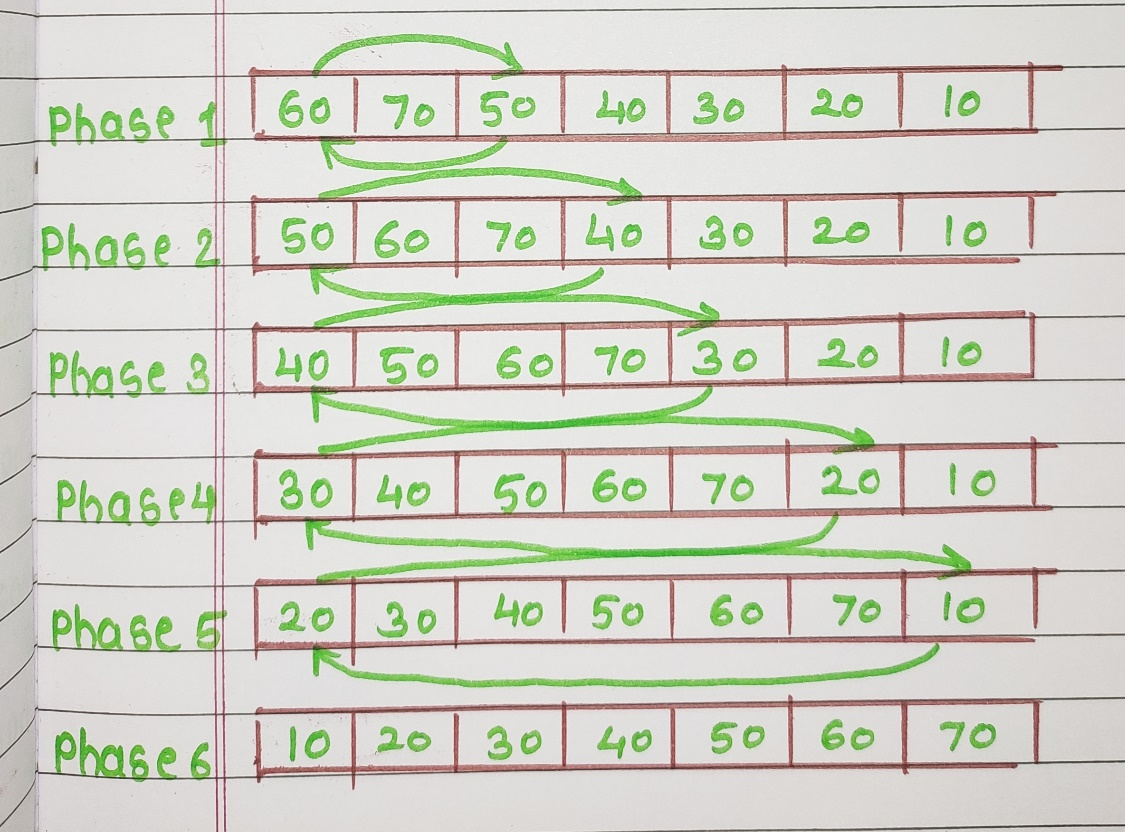 Phase 1 60 70 50 40 30 20 10
Phase 2 50 60 70 40 30 20 10
Phase 3 40 50 60 70 30 20 10
Phase4 30 40 50 60 70 20 10
Phase 5 20 30 40 50 60 70 10
Phase 6 10 20 30 40 50 60 70